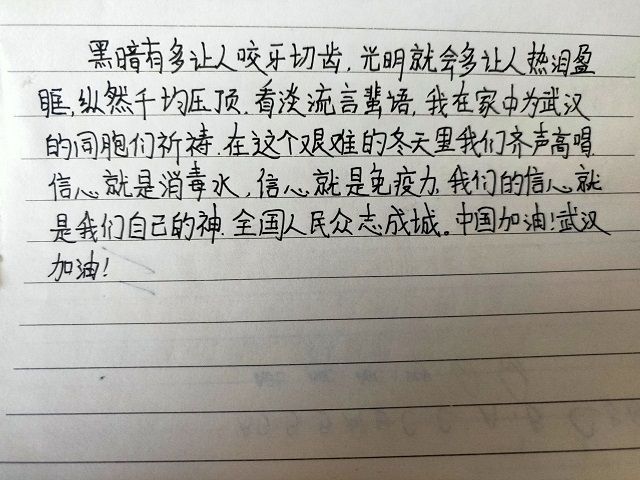 黑暗有多让人咬牙切齿,光明就会多让人热泪盈
眶,纵然千均压顶.看淡流言蜚语,我在家中为武汉
的同胞们祈祷.在这个艰难的冬天里我们齐声高唱
信心就是消毒水,信心就是免疫力.我们的信心就
是我们自己的神.全国人民众志成城。中国加油!武汉
加油!